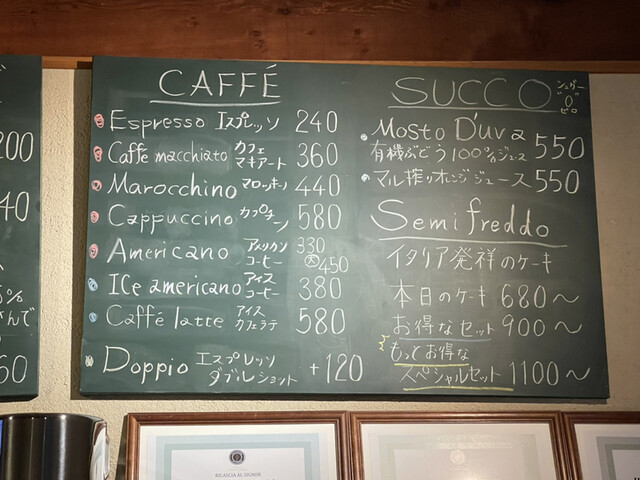 200
40
5%
さんで
60
CAFFÉ
Espresso エスプレッソ 240
Caffé macchiato カフェ マキアート 360
Marocchino マロッキーノ 440
Cappuccino カプチーノ 580
Americano アメリカン コーヒー 330
大 450
ICe americano アイス コーヒー 380
Caffé latte アイス カフェラテ 580
Doppio エスプレッソ ダブルショット +120
SUCCO シュガー 0 ゼロ
Mosto D'uva
有機ぶどう100%ジュース 550
マル搾りオレンジジュース 550
Semifreddo
イタリア発祥のケーキ
本日のケーキ 680〜
お得なセット 900〜
もっとお得な
スペシャルセット 1100〜
RILASCIA AL SIGNOR